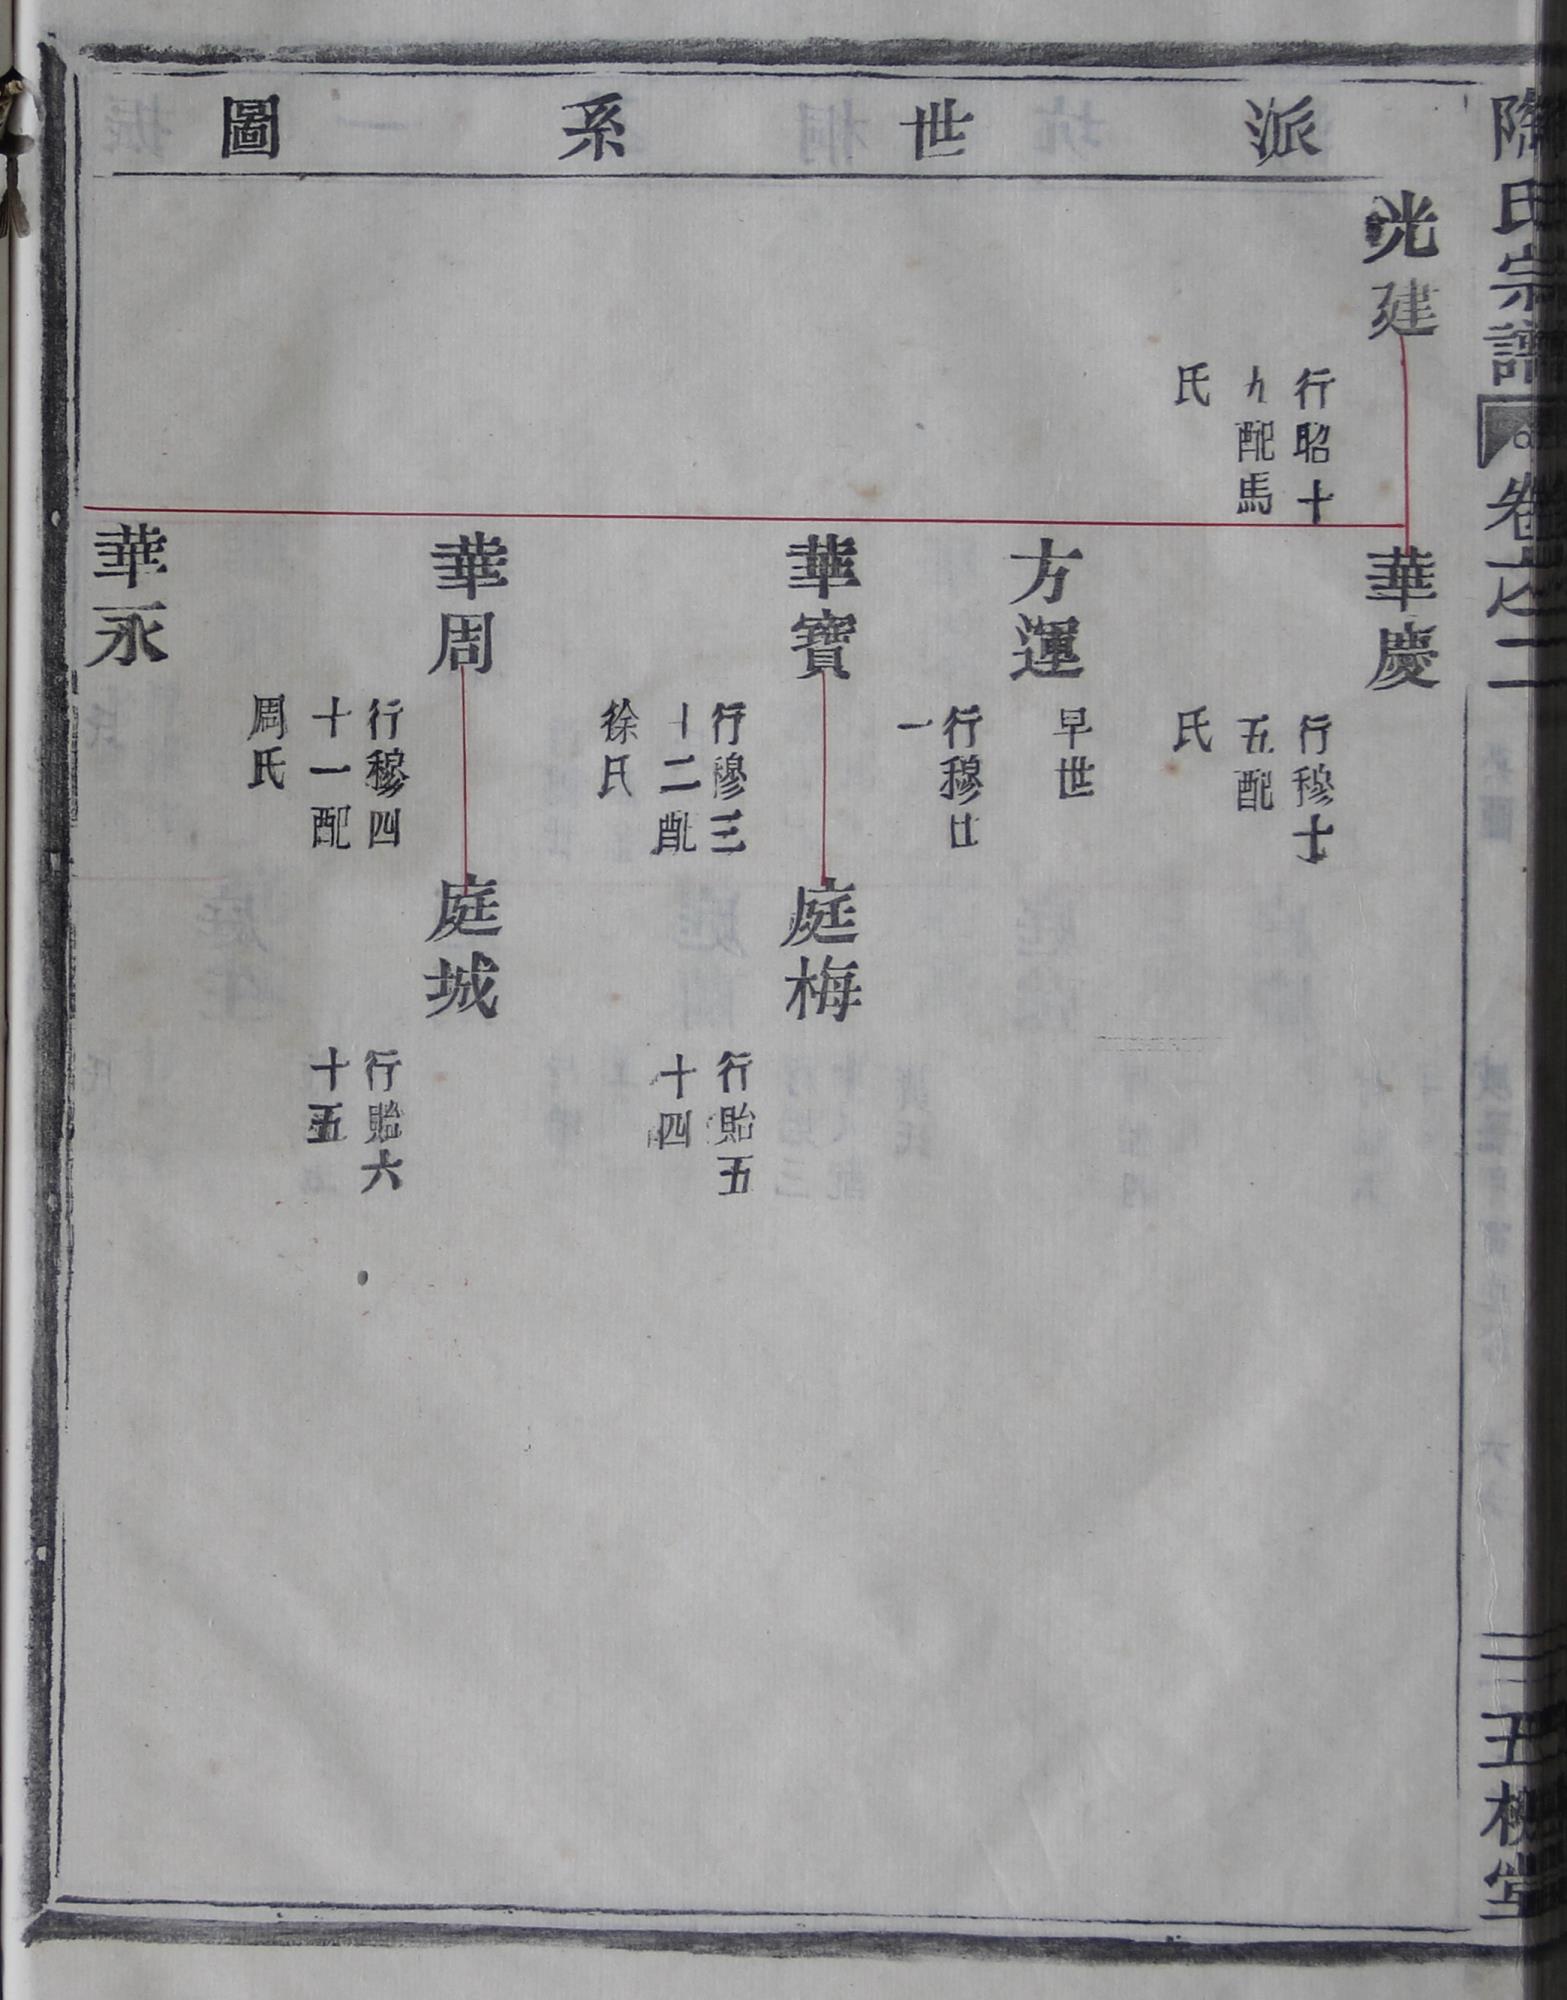 陶氏宗譜
卷之二
五柳堂
派世系圖
光建
行昭十
九配馬
氏
華慶
行穆十
五配
氏
方運
早世
行穆廿
一
華寶
行穆三
十二配
徐氏
庭梅
行貽五
十四
華周
行穆四
十一配
周氏
庭城
行貽六
十五
華永